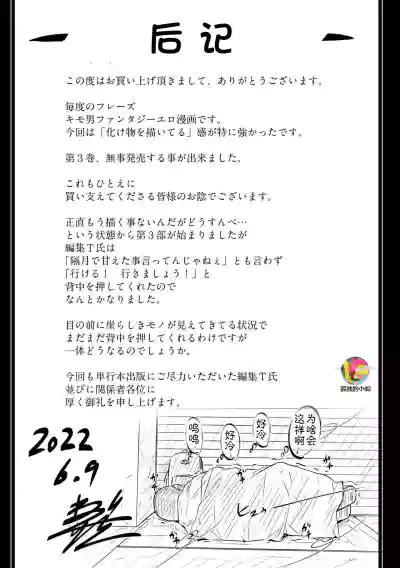 后记
この度はお買い上げ頂きまして、ありがとうございます。
毎度のフレーズ
キモ男ファンタジーエロ漫画です。
今回は「化け物を描いてる」感が特に強かったです。
第３巻、無事発売する事が出来ました。
これもひとえに
買い支えてくださる皆様のお陰でございます。
正直もう描く事ないんだがどうすんべ…
という状態から第３部が始まりましたが
編集Ｔ氏は
「隔月で甘えた事言ってんじゃねぇ」とも言わず
「行ける！　行きましょう！」と
背中を押してくれたので
なんとかなりました。
目の前に崖らしきモノが見えてきてる状況で
まだまだ背中を押してくれるわけですが
一体どうなるのでしょうか。
今回も単行本出版にご尽力いただいた編集Ｔ氏
並びに関係者各位に
厚く御礼を申し上げます。
孤独的小蛇
为啥会
这样啊
好冷
好冷
呜呜
ヒュゥ
2022
6.9